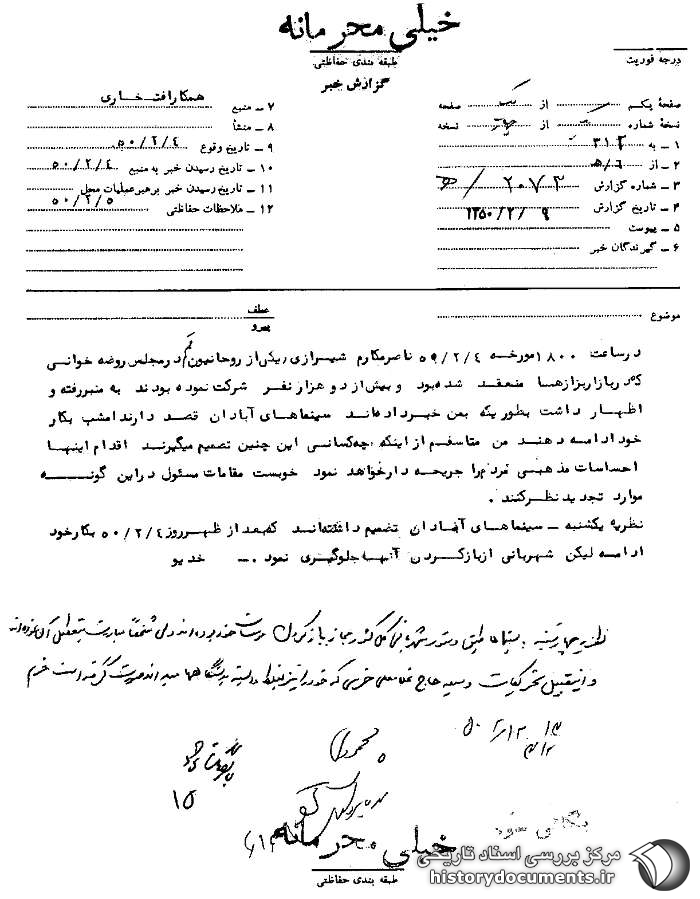 خیلی محرمانه
طبقه بندی حفاظتی
گزارش خبر
درجه فوریت
صفحهٔ یکم از یک صفحه
نسخهٔ شماره از نسخه
۱ – به ۳۱۲
۲ – از ۶/ه
۳ – شماره گزارش ۲۰۷۳/ه
۴ – تاریخ گزارش ۱۳۵۰/۲/۹
۵ – پیوست
۶ – گیرندگان خبر
۷ – منبع همکار افتخاری
۸ – منشأ
۹ – تاریخ وقوع ۵۰/۲/۴
۱۰ – تاریخ رسیدن خبر به منبع ۵۰/۲/۴
۱۱ – تاریخ رسیدن خبر برهبر عملیات محل ۵۰/۲/۵
۱۲ – ملاحظات حفاظتی
موضوع
عطف
پیرو
درساعت ۱۸۰۰ مورخه ۵۰/۲/۴ ناصرمکارم شیرازی یکی از روحانیون قم درمجلس روضه خوانی
که در بازار بزازها منعقد شده بود و بیش از دو هزار نفر شرکت نموده بودند به منبر رفته و
اظهار داشت بطوریکه بمن خبر داده‌اند سینماهای آبادان قصد دارند امشب بکار
خود ادامه دهند من متاسفم از اینکه چه کسانی این چنین تصمیم میگیرند اقدام اینها
احساسات مذهبی مردم را جریحه دار خواهد نمود خوبست مقامات مسئول در این گونه
موارد تجدید نظر کنند .
نظریه یکشنبه – سینماهای آبادان تصمیم داشته‌اند که بعد از ظهر روز ۵۰/۲/۴ بکار خود
ادامه لیکن شهربانی از باز کردن آنها جلوگیری نمود .– خدیو
نظریه چهارشنبه . سینماها طبق دستور شهربانی کل کشور مجاز باز کردن بوده‌اند ولی شخصاً مبادرت بتعطیل آن نموده‌اند
و از این قبیل تحریکات وسیله حاج غلامعلی خرمی که خود را نیز وابسته بدستگاهها میداند صورت گرفته است خرم
۱۵
خیلی محرمانه
طبقه بندی حفاظتی
مرکز بررسی اسناد تاریخی
historydocuments.ir